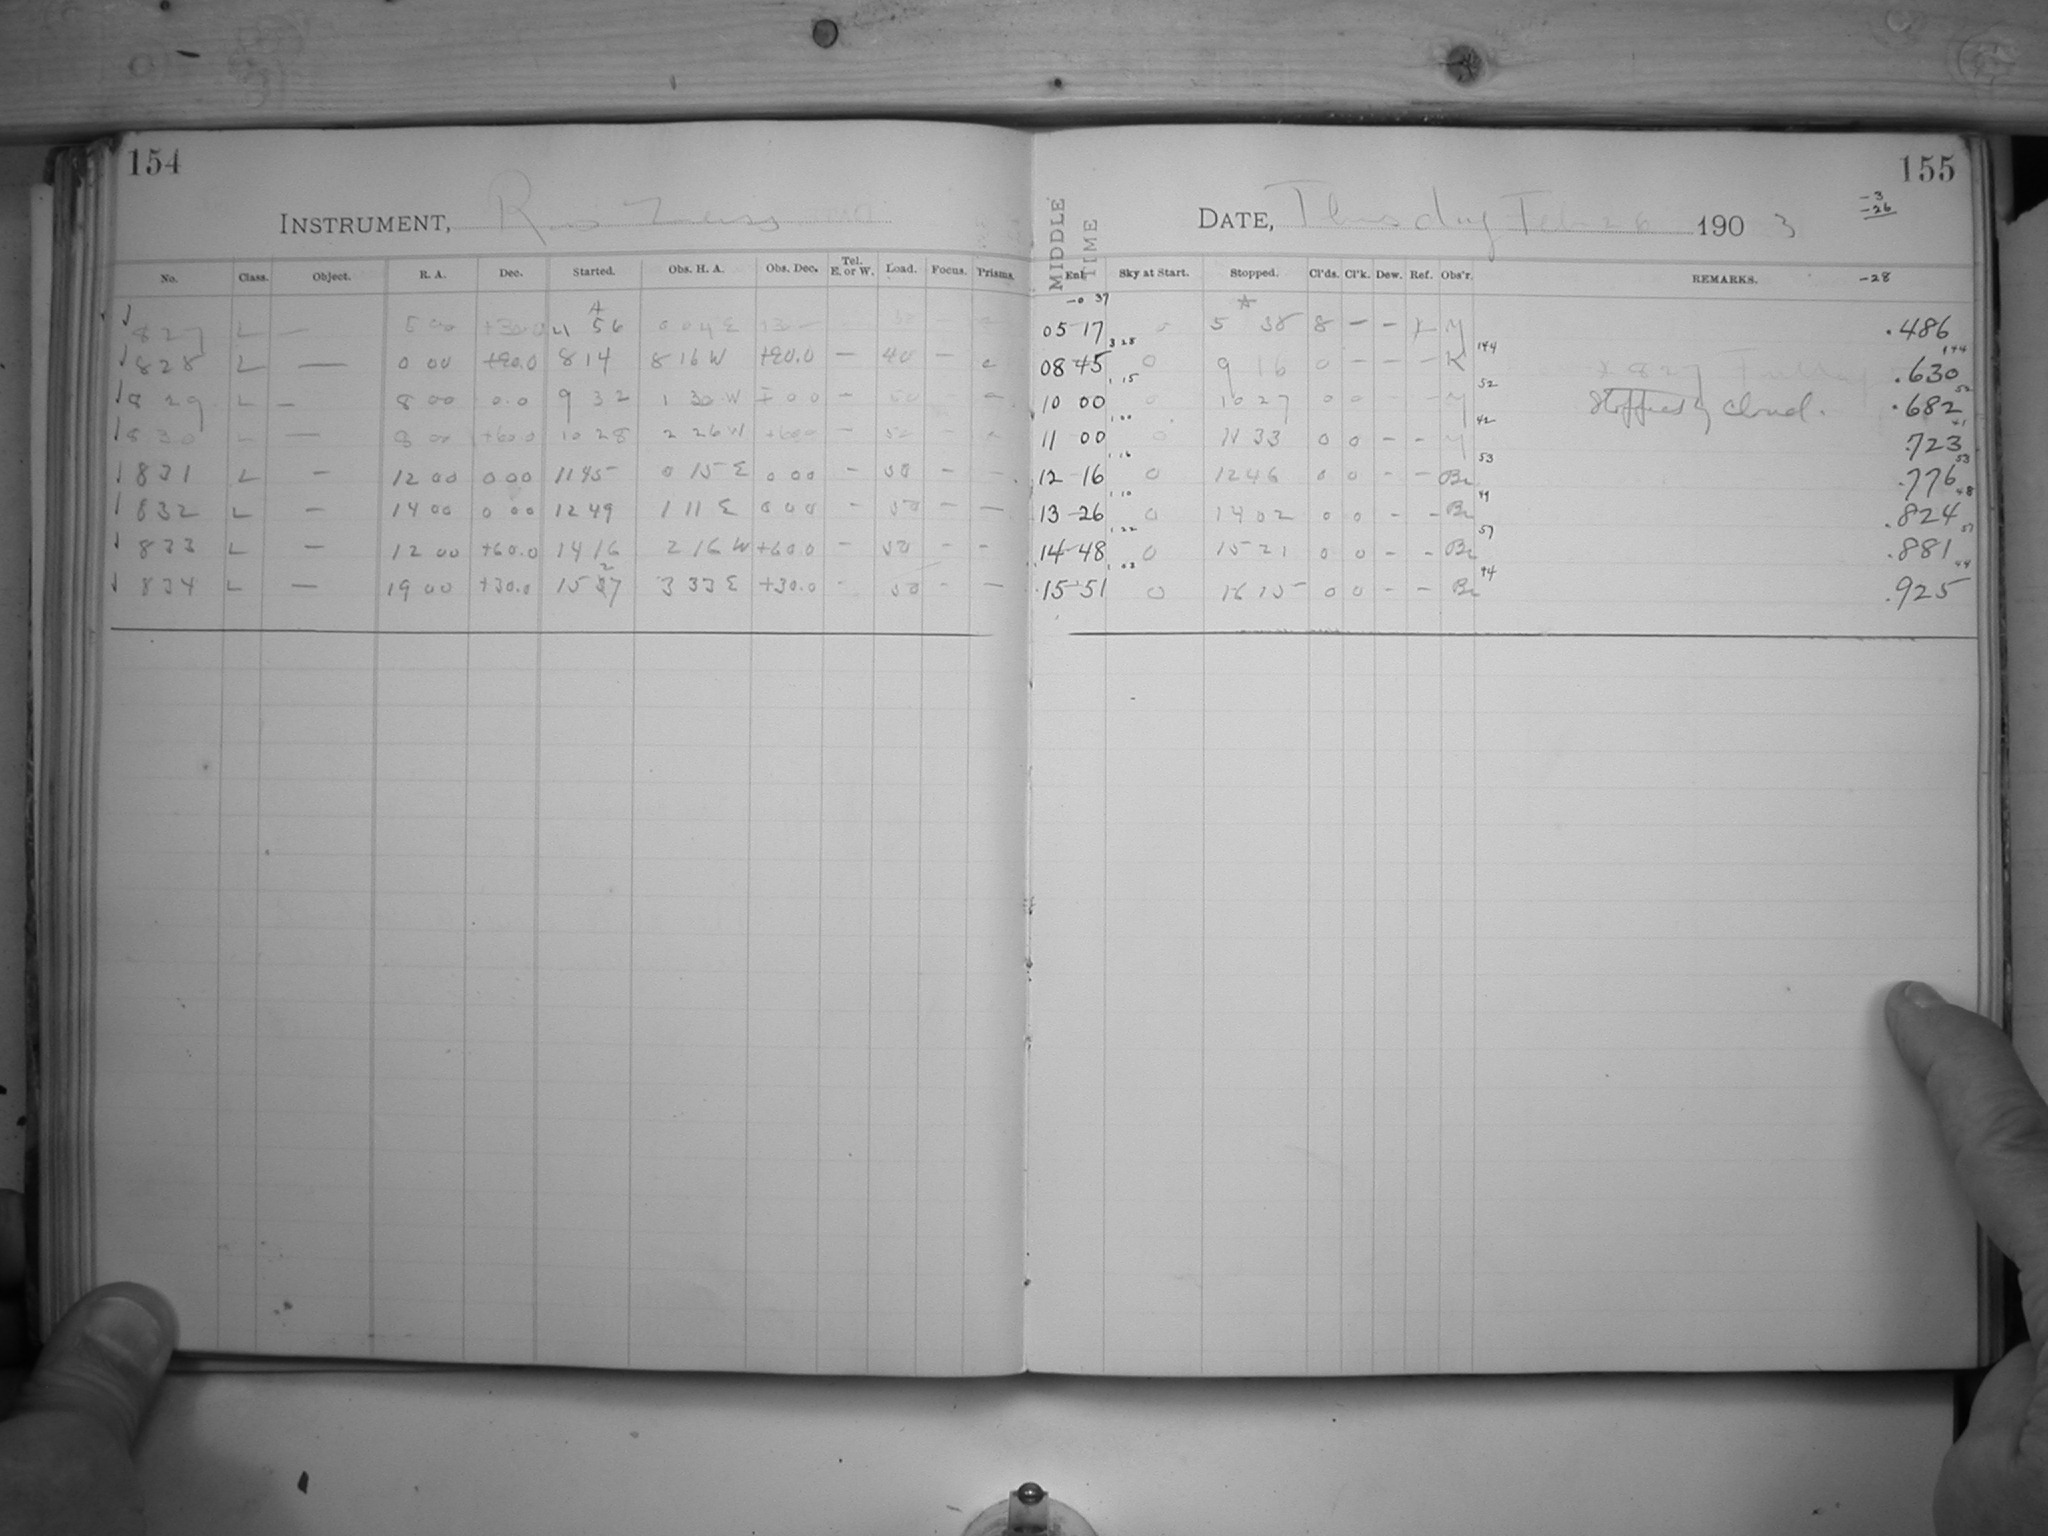 154
155
INSTRUMENT,
MIDDLE TIME
DATE, Thursday Feb 26 1903
-3
-26
No. Class. Object. R. A. Dec. Started. Obs. H. A. Obs. Dec. Tel. E. or W. Load. Focus. Prisms. Sky at Start. Stopped. Cl'ds. Cl'k. Dew. Ref. Obs'r. REMARKS. -28
-0 37
827 L — 5 00 +30.0 4 56 0 04 E 05-17 5 38 8 — — M .486
3 28 144 144
828 L — 0 00 +90.0 8 14 8 16 W +90.0 — 40 — 08 45 0 9 16 0 — — — K .630
1 15 52 52
829 L — 8 00 0.0 9 32 1 30 W 0 0 — 50 — 10 00 0 10 27 0 0 — — M cloud. .682
1 00 42 41
830 L — 8 00 +60.0 10 28 2 26 W +60.0 — 50 — 11 00 0 11 33 0 0 — — M .723
1 16 53 53
831 L — 12 00 0 00 11 45 0 15 E 0 00 — 50 — — 12-16 0 12 46 0 0 — — Br .776
1 10 49 48
832 L — 14 00 0 00 12 49 1 11 E 0 00 — 50 — — 13-26 0 14 02 0 0 — — Br .824
1 22 57 57
833 L — 12 00 +60.0 14 16 2 16 W +60.0 — 50 — — 14-48 0 15 21 0 0 — — Br .881
1 03 44 44
834 L — 19 00 +30.0 15 27 3 33 E +30.0 — 50 — — 15-51 0 16 15 0 0 — — Br .925